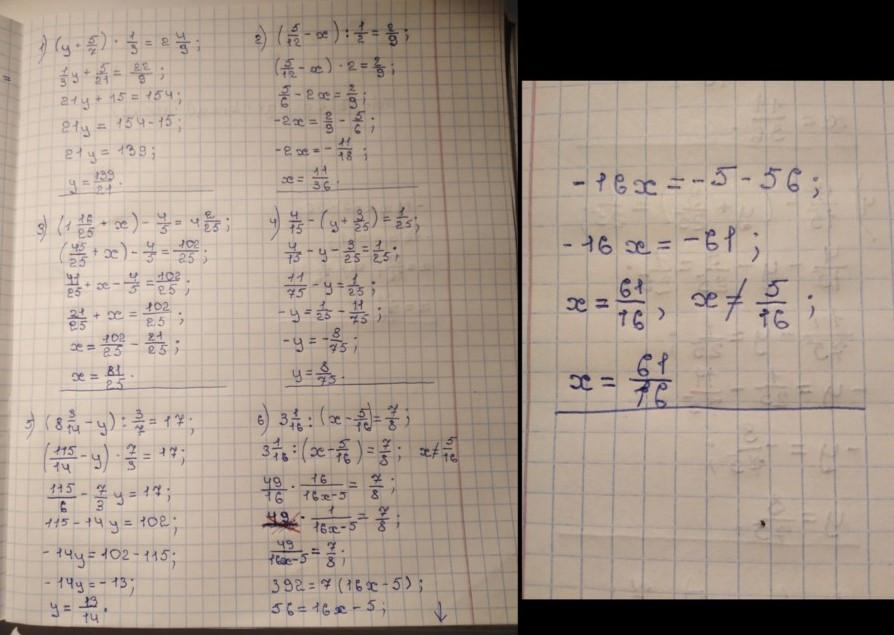 1) (y + 5/7) · 1/3 = 2 4/9;
1/3 y + 5/21 = 22/9;
21y + 15 = 154;
21y = 154 - 15;
21y = 139;
y = 139/21.
2) (5/12 - x) : 1/2 = 2/9;
(5/12 - x) · 2 = 2/9;
5/6 - 2x = 2/9;
-2x = 2/9 - 5/6;
-2x = -11/18;
x = 11/36.
3) (1 16/25 + x) - 4/5 = 4 2/25;
(41/25 + x) - 4/5 = 102/25;
41/25 + x - 4/5 = 102/25;
21/25 + x = 102/25;
x = 102/25 - 21/25;
x = 81/25.
4) 4/15 - (y + 3/25) = 1/25;
4/15 - y - 3/25 = 1/25;
11/75 - y = 1/25;
-y = 1/25 - 11/75;
-y = -8/75;
y = 8/75.
5) (8 3/14 - y) : 3/7 = 17;
(115/14 - y) · 7/3 = 17;
115/6 - 7/3 y = 17;
115 - 14y = 102;
-14y = 102 - 115;
-14y = -13;
y = 13/14.
6) 3 1/16 : (x - 5/16) = 7/8;
3 1/16 : (x - 5/16) = 7/8; x ≠ 5/16
49/16 · 16/16x-5 = 7/8;
49 · 1/16x-5 = 7/8;
49/16x-5 = 7/8;
392 = 7(16x - 5);
56 = 16x - 5; ↓
-16x = -5 - 56;
-16x = -61;
x = 61/16, x ≠ 5/16;
x = 61/16